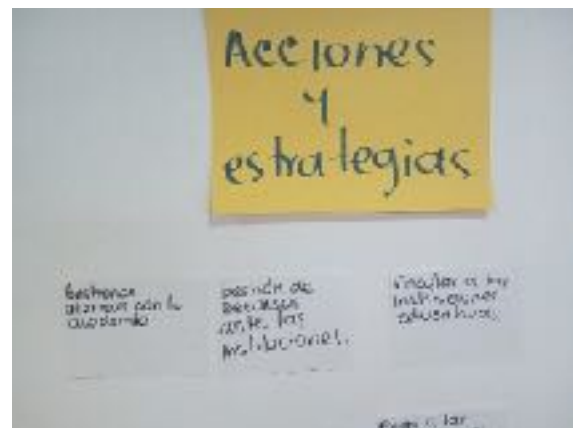 Acciones
y
estrategias
alianzas con la
academia
gestión de
recursos
ante las
instituciones.
vincular a las
instituciones
educativas